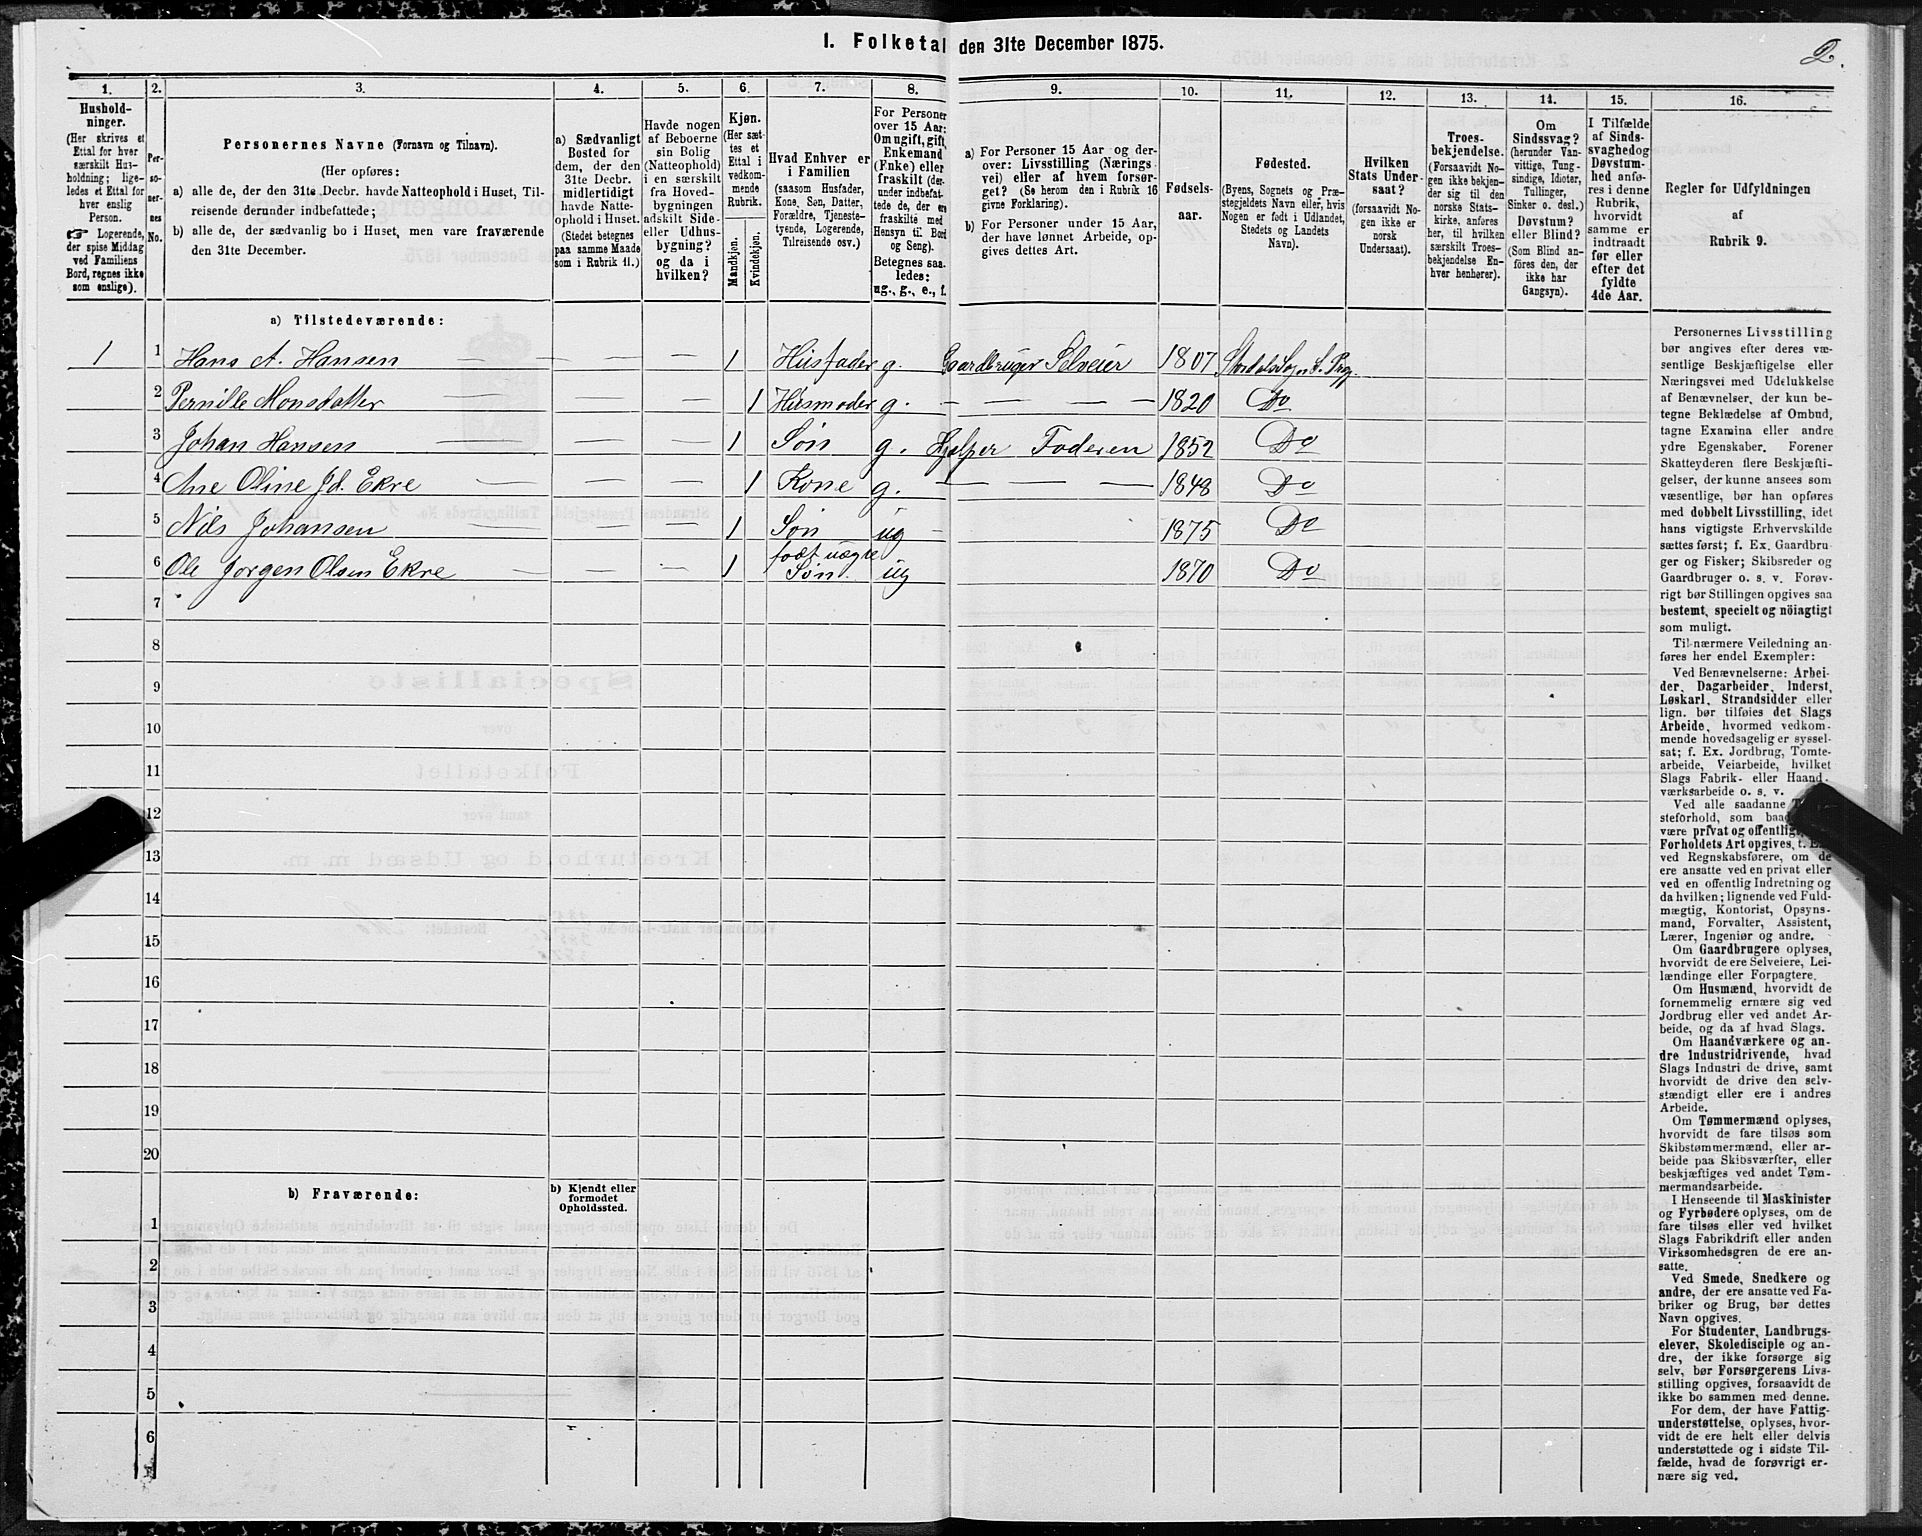 I. Folketal den 31te December 1875.
2.
1.
Hushold-
ninger.
(Her skrives et
Ettal for hver
særskilt Hus-
holdning; lige-
ledes et Ettal for
hver enslig
Person.
☞ Logerende,
der spise Middag
ved Familiens
Bord, regnes ikke
som enslige).
2.
Per-
so-
ner-
nes
No.
3.
Personernes Navne (Fornavn og Tilnavn).
(Her opføres:
a) alle de, der den 31te Decbr. havde Natteophold i Huset, Til-
reisende derunder indbefattede;
b) alle de, der sædvanlig bo i Huset, men vare fraværende
den 31te December.
4.
a) Sædvanligt
Bosted for
dem, der den
31te Decbr.
midlertidigt
havde Natte-
ophold i Huset.
(Stedet betegnes
paa samme Maade
som i Rubrik 11.)
5.
Havde nogen
af Beboerne
sin Bolig
(Natteophold)
i en særskilt
fra Hoved-
bygningen
adskilt Side-
eller Udhus-
bygning?
og da i
hvilken?
6.
Kjøn.
(Her sæt-
tes et
Ettal i
vedkom-
mende
Rubrik.
Mandkjøn.
Kvindekjøn.
7.
Hvad Enhver er
i Familien
(saasom Husfader,
Kone, Søn, Datter,
Forældre, Tjeneste-
tyende, Logerende,
Tilreisende osv.)
8.
For Personer
over 15 Aar:
Om ugift, gift,
Enkemand
(Enke) eller
fraskilt (der-
under indbefat-
tede de, der ere
fraskilte med
Hensyn til Bord
og Seng).
Betegnes saa-
ledes:
ug., g., e., f.
9.
a) For Personer 15 Aar og der-
over: Livsstilling (Nærings-
vei) eller af hvem forsør-
get? (Se herom den i Rubrik 16
givne Forklaring).
b) For Personer under 15 Aar,
der have lønnet Arbeide, op-
gives dettes Art.
10.
Fødsels-
aar.
11.
Fødested.
(Byens, Sognets og Præ-
stegjeldets Navn eller, hvis
Nogen er født i Udlandet,
Stedets og Landets
Navn).
12.
Hvilken
Stats Under-
saat?
(forsaavidt No-
gen ikke er
norsk
Undersaat).
13.
Troes-
bekjendelse.
(Forsaavidt No-
gen ikke bekjen-
der sig til den
norske Stats-
kirke, anføres
her, til hvilken
særskilt Troes-
bekjendelse En-
hver henhører).
14.
Om
Sindssvag?
(herunder Van-
vittige, Tung-
sindige, Idioter,
Tullinger,
Sinker o. desl.)
Døvstum?
eller Blind?
(Som Blind an-
føres den, der
ikke har
Gangsyn).
15.
I Tilfælde
af Sinds-
svaghed og
Døvstum-
hed anfø-
res i denne
Rubrik,
hvorvidt
samme er
indtraadt
før eller
efter det
fyldte
4de Aar.
16.
Regler for Udfyldningen
af
Rubrik 9.
a) Tilstedeværende:
1 1 Hans A. Hansen — — — 1 Husfader g. Gaardbruger Selveier 1807
2 Pernille Monsdatter 1 Husmoder g. — — — — 1820 Do
3 Johan Hansen — — — 1 Søn g. Hjelper Faderen 1852 Do
4 Ane Oline Jd. Ekre — — — 1 Kone g. — — — — 1848 Do
5 Nils Johansen — — — 1 Søn ug — 1875 Do
6 Ole Jørgen Olsen Ekre — — — 1 født uægte Søn. ug 1870 Do
7
8
9
10
11
12
13
14
15
16
17
18
19
20
b) Fraværende:
b) Kjendt eller
formodet
Opholdssted.
1
2
3
4
5
6
Personernes Livsstilling
bør angives efter deres væ-
sentlige Beskjæftigelse eller
Næringsvei med Udelukkelse
af Benævnelser, der kun be-
tegne Beklædelse af Ombud,
tagne Examina eller andre
ydre Egenskaber. Forener
Skatteyderen flere Beskjæfti-
gelser, der kunne ansees som
væsentlige, bør han opføres
med dobbelt Livsstilling, idet
hans vigtigste Erhvervskilde
sættes først; f. Ex. Gaardbru-
ger og Fisker; Skibsreder og
Gaardbruger o. s. v. Forøv-
rigt bør Stillingen opgives saa
bestemt, specielt og nöiagtigt
som muligt.
Til nærmere Veiledning an-
føres her endel Exempler:
Ved Benævnelserne: Arbei-
der, Dagarbeider, Inderst,
Løskarl, Strandsidder eller
lign. bør tilføies det Slags
Arbeide, hvormed vedkom-
mende hovedsagelig er syssel-
sat; f. Ex. Jordbrug, Tomte-
arbeide, Veiarbeide, hvilket
Slags Fabrik- eller Haand-
værksarbeide o. s. v.
Ved alle saadanne
steforhold, som
være privat og offentlig,
Forholdets Art opgives,
ved Regnskabsførere, om de
ere ansatte ved en privat eller
ved en offentlig Indretning og
da hvilken; lignende ved Fuld-
mægtig, Kontorist, Opsyns-
mand, Forvalter, Assistent,
Lærer, Ingeniør og andre.
Om Gaardbrugere oplyses,
hvorvidt de ere Selveiere, Lei-
lændinge eller Forpagtere.
Om Husmænd, hvorvidt de
fornemmelig ernære sig ved
Jordbrug eller ved andet Ar-
beide, og da af hvad Slags.
Om Haandværkere og an-
dre Industridrivende, hvad
Slags Industri de drive, samt
hvorvidt de drive den selv-
stændigt eller ere i andres
Arbeide.
Om Tømmermænd oplyses,
hvorvidt de fare tilsøs som
Skibstømmermænd, eller ar-
beide paa Skibsværfter, eller
beskjæftiges ved andet Tøm-
mermandsarbeide.
I Henseende til Maskinister
og Fyrbødere oplyses, om de
fare tilsøs eller ved hvilket
Slags Fabrikdrift eller anden
Virksomhedsgren de ere an-
satte.
Ved Smede, Snedkere og
andre, der ere ansatte ved Fa-
briker og Brug, bør dettes
Navn opgives.
For Studenter, Landbrugs-
elever, Skoledisciple og an-
dre, der ikke forsørge sig
selv, bør Forsørgerens Livs-
stilling opgives, forsaavidt de
ikke bo sammen med denne.
For dem, der have Fattig-
understøttelse, oplyses, hvor-
vidt de ere helt eller delvis
understøttede og i sidste Til-
fælde, hvad de forøvrigt er-
nære sig ved.